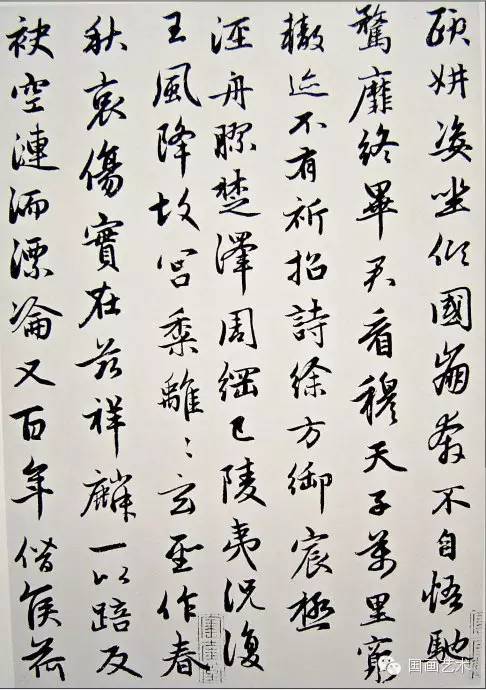 頤妍姿坐傾國崩奔不自悟馳
騖靡終畢君看穆天子萬里窮
轍迹不有祈招詩徐方御宸極
涇舟膠楚澤周綱已陵夷況復
王風降故宮黍離々玄聖作春
秋哀傷實在兹祥麟一以踣反
袂空漣洏漂淪又百年僭侯荷
国画艺术